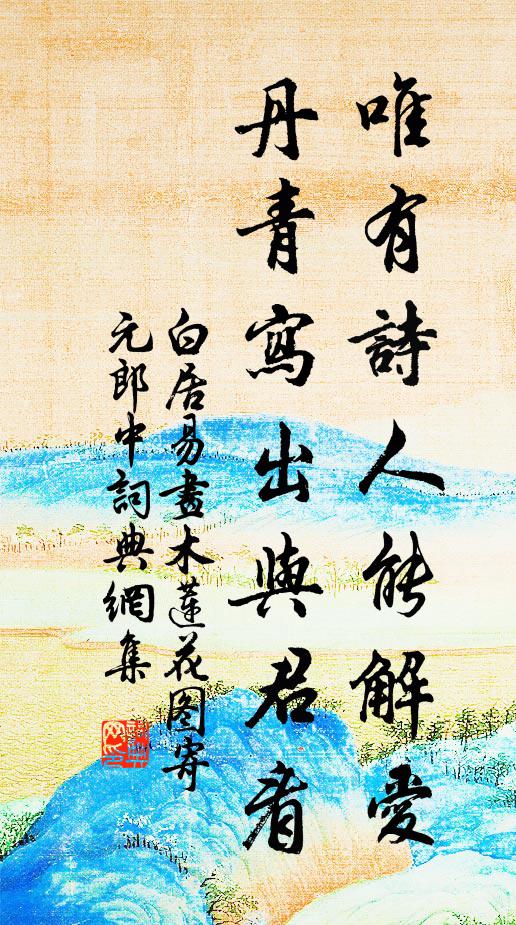 唯有詩人能解愛
丹青寫出與君看
白居易畫木蓮花图寄
元郎中詞典網集